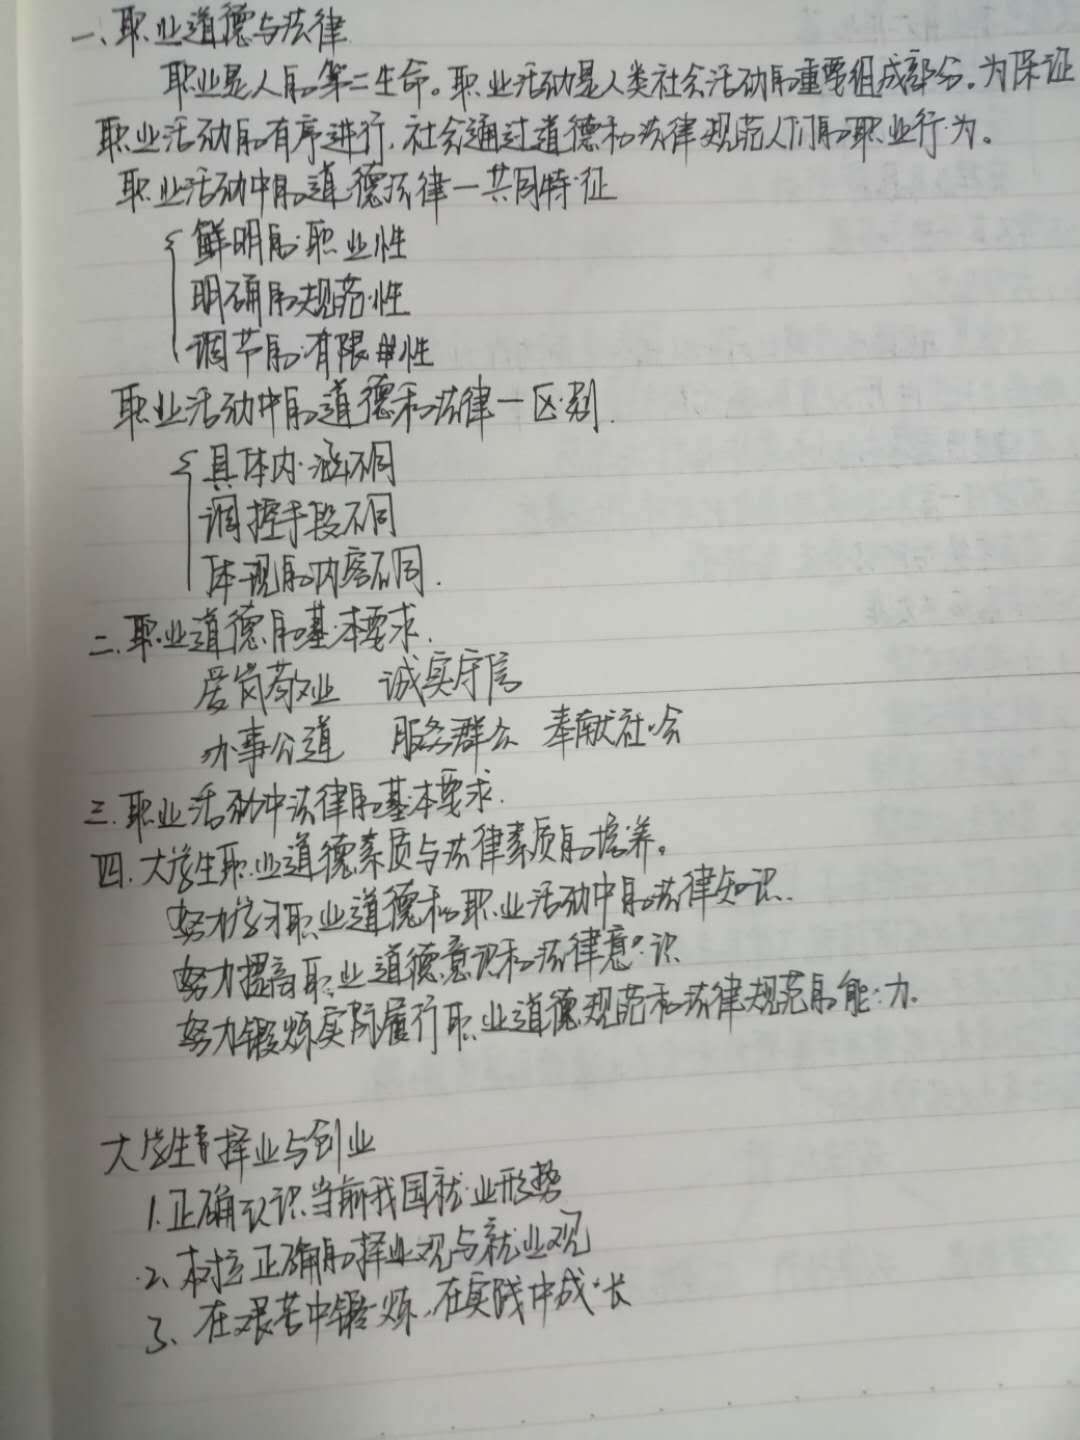 一、职业道德与法律
职业是人的第二生命。职业活动是人类社会活动的重要组成部分。为保证
职业活动的有序进行，社会通过道德和法律规范人们的职业行为。
职业活动中的道德法律一共同特征
鲜明的职业性
明确的规范性
调节的有限性
职业活动中的道德和法律一区别.
具体内涵不同
调控手段不同
体现的内容不同.
二.职业道德的基本要求.
爱岗敬业 诚实守信
办事公道 服务群众 奉献社会
三.职业活动中法律的基本要求.
四.大学生职业道德素质与法律素质的培养。
努力学习职业道德和职业活动中的法律知识.
努力提高职业道德意识和法律意识
努力锻炼实际履行职业道德规范和法律规范的能力.
大学生择业与创业
1.正确认识当前我国就业形势
2、树立正确的择业观与就业观
3、在艰苦中锻炼，在实践中成长